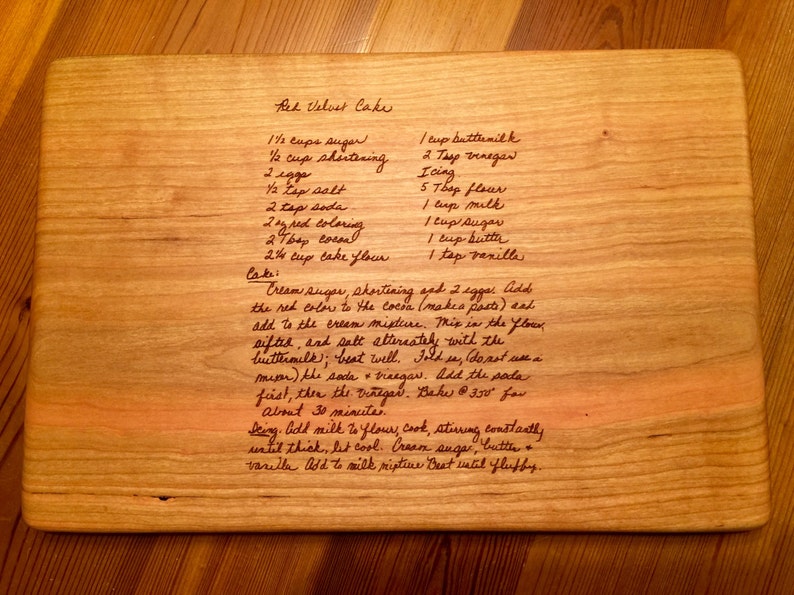 Red Velvet Cake
1 1/2 cups sugar
1/2 cup shortening
2 eggs
1/2 tsp salt
2 tsp soda
2 oz red coloring
2 Tbsp cocoa
2 1/4 cup cake flour
1 cup buttermilk
2 Tsp vinegar
Icing
5 Tbsp flour
1 cup milk
1 cup sugar
1 cup butter
1 tsp vanilla
Cake:
Cream sugar, shortening and 2 eggs. Add
the red color to the cocoa (make a paste) and
add to the cream mixture. Mix in the flour,
sifted, and salt alternately with the
buttermilk; beat well. Fold in, (do not use a
mixer) the soda + vinegar. Add the soda
first, then the vinegar. Bake @ 350° for
about 30 minutes.
Icing. Add milk to flour, cook, stirring constantly
until thick, let cool. Cream sugar, butter +
vanilla Add to milk mixture Beat until fluffy.